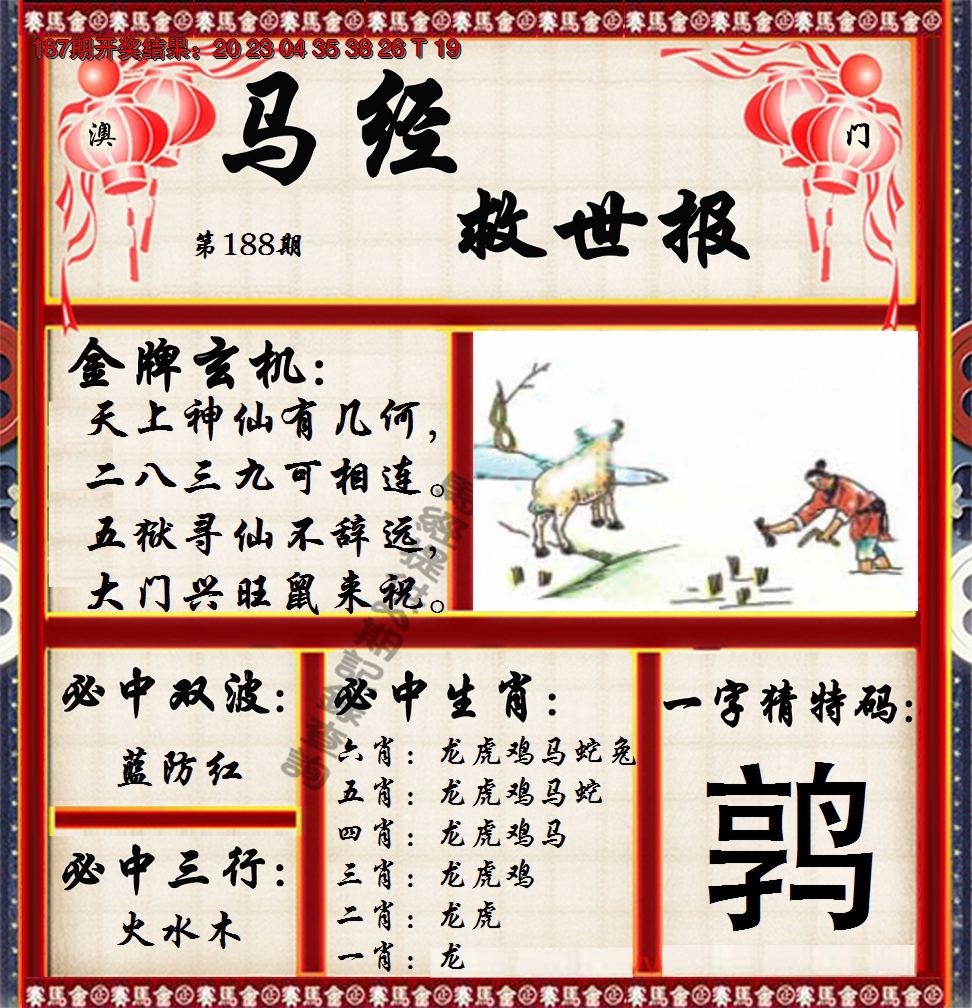 賽馬會㊣賽馬會㊣賽馬會㊣賽馬會㊣賽馬會㊣賽馬會㊣
187期开奖结果：20 23 04 35 38 26 T 19
澳
门
马经
救世报
第188期
金牌玄机：
天上神仙有几何，
二八三九可相连。
五狱寻仙不辞远，
大门兴旺鼠来祝。
必中双波：
蓝防红
必中三行：
火水木
必中生肖：
六肖：龙虎鸡马蛇兔
五肖：龙虎鸡马蛇
四肖：龙虎鸡马
三肖：龙虎鸡
二肖：龙虎
一肖：龙
一字猜特码：
鹑